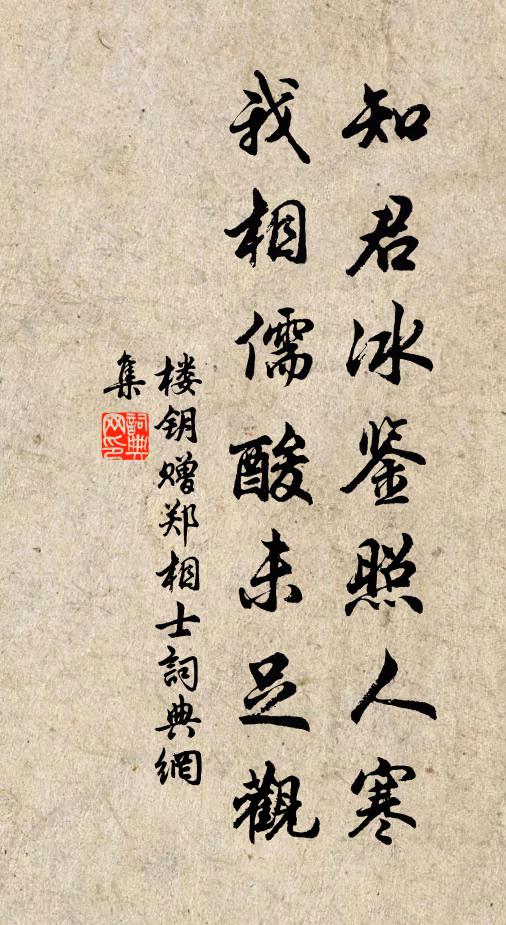 知君冰鉴照人寒
我相儒酸未足觀
楼钥赠郑相士詞典網
集
詞典網印